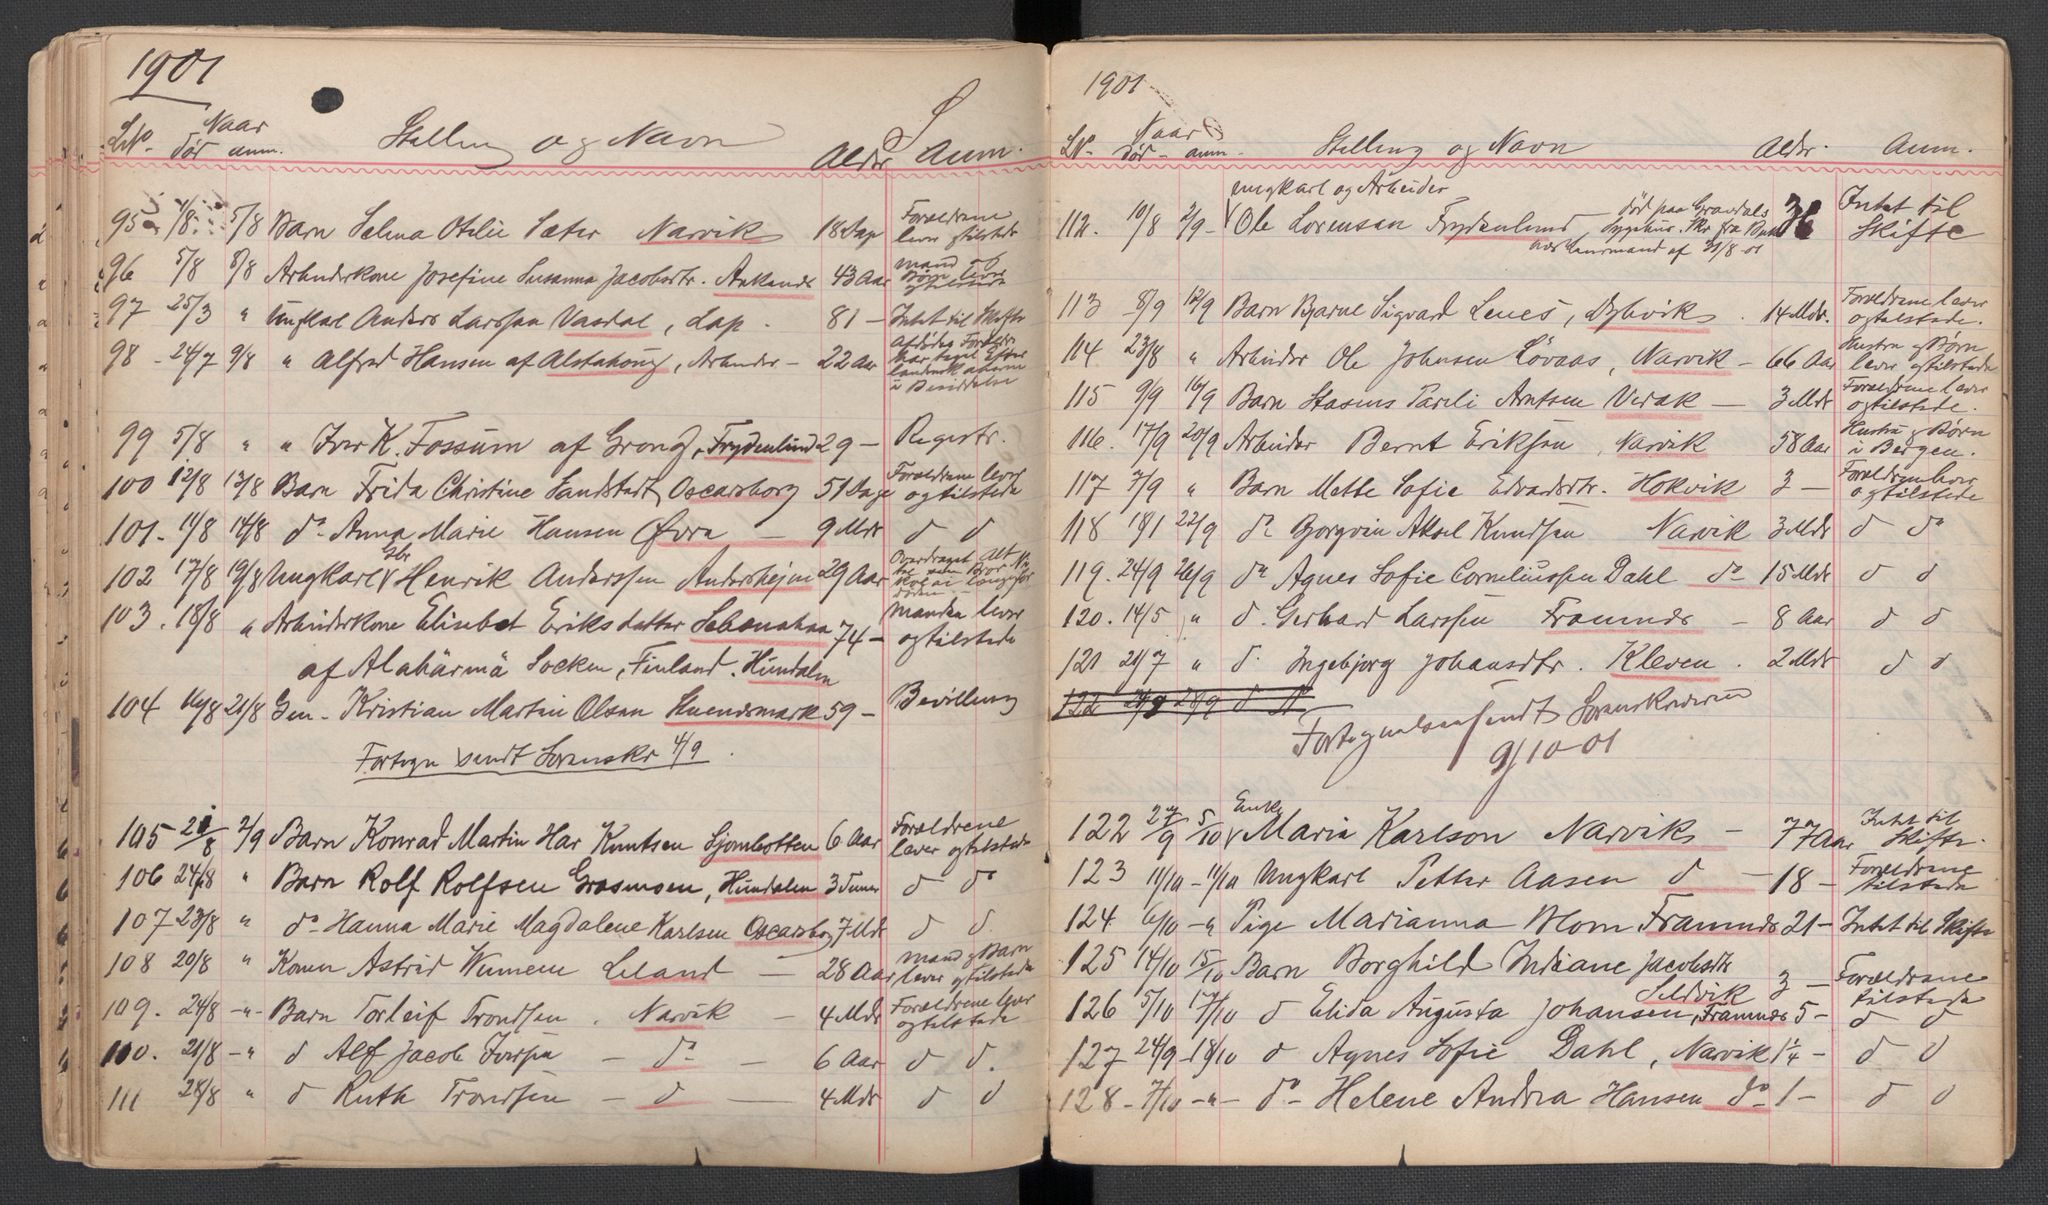 1901
LNo. Naar Stilling og Navn Alder Anm.
død anm.
95 4/8 5/8 Barn Selma Otilie Sæter Narvik 18 Dage Forældrene lever og tilstede
96 5/8 8/8 Arbeiderkone Josefine Susanna Jacobsdtr. Ankenes 43 Aar Mand og 6 Børn lever og tilstede
97 25/3 " Ungkarl Anders Larssen Vasdal, Lap. 81 — Intet til Skifte
98 - 24/7 9/8 " Alfred Hansen af Alstahoug, Arbeider - 22 Aar Afdødes Forældre har taget Efterladenskaberne i Besiddelse
99 5/8 " " Iver K. Fossum af Grong, Frydenlund 29 — Registr.
100 12/8 13/8 Barn Frida Christine Sandstedt, Oscarsborg 51 Dage Forældrene lever og tilstede
101. 11/8 14/8 do Anna Marie Hansen Øvra — 9 Mdr d d
102 17/8 19/8 Ungkarl Henrik Anderssen Andershejm 29 Aar Overdraget Alt
103. 18/8 " Arbeiderkone Elisabet Eriksdatter 74 — Manden lever og tilstede
af Alahärmä Socken, Finland. Hundalen
104 16/8 21/8 Gen- Kristian Martin Olsen 59 — Bevilling
Fortegn sendt Sorenskr 4/9.
105 21/8 2/9 Barn Konrad Martin Har Knutsen Sjombotten 6 Aar Forældrene lever og tilstede
106 24/8 " Barn Rolf Rolfsen Hundalen 3 Timer d do
107 23/8 " do Hanna Marie Magdalene Karlsen Oscarsborg 7 Mdr d d
108 20/8 " Konen Astrid Leland — 28 Aar Mand og Barn lever og tilstede
109. 24/8 -"- Barn Torleif Trondsen. Narvik — 4 Mdr Forældrene lever og tilstede
110. 21/8 -" d Alf Jacob — do — 6 Aar d d.
111 28/8 " d Ruth Trondsen — d — 4 Mdr d d
1901
LNo Naar Stilling og Navn Alder. Anm.
død - anm.
Ungkarl og Arbeider
112. 10/8 2/9 - Ole Lorensen Frydenlund, død paa Gravdals Sygehus. 36 Intet til Skifte
Lensmand af 31/8-01
113 8/9 12/9 Barn Bjarne Sigvard Lenes, Dybvik. 14 Mdr. Forældrene lever og tilstede.
114 23/8 " Arbeider Ole Johnsen Løvaas, Narvik — 66 Aar Hustru og Børn lever og tilstede
115 9/9 16/9 Barn Stasius Pareli Arntsen Virak — 3 Mdr Forældrene lever og tilstede.
116. 17/9 20/9 Arbeider Bernt Eriksen, Narvik 58 Aar Hustru og Børn i Bergen.
117 7/9 " Barn Mette Sofie Edvardsdtr. Hokvik 3 — Forældrene lever og tilstede
118 18/1 22/9 do Borgvin Aksel Knudsen Narvik 3 Mdr d do
119. 24/9 26/9 do Agnes Sofie Corneliussen Dahl do 15 Mdr d d
120. 14/5 " d. Gerhard Larssen Framnes — 8 Aar d d
121 21/7 " d. Ingebjorg Johansdtr. Kleven. 2 Mdr d d
122 24/9 28/9 d
Fortegnelsen sendt Sorenskriveren
9/10-01
122 27/9 5/10 Enke Maria Karlson Narvik — 77 Aar Intet til Skifte.
123 11/10 - 11/10 Ungkarl Petter Aasen d — 18 — Forældrene tilstede
124 6/10 - " Pige Marianna Blom Framnes 21 — Intet til Skifte
125 14/10 15/10 Barn Borghild Indiane Jacobsdtr Seldvik 3 — Forældrene tilstede
126 5/10 17/10 d Elida Augusta Johansen, Framnes 5 - d d
127 24/9 - 18/10 d Agnes Sofie Dahl, Narvik 1 1/4 - d d
128 - 7/10 -"- do - Helene Andrea Hansen do 1 - d d